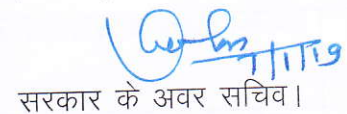 7/1/19
सरकार के अवर सचिव।